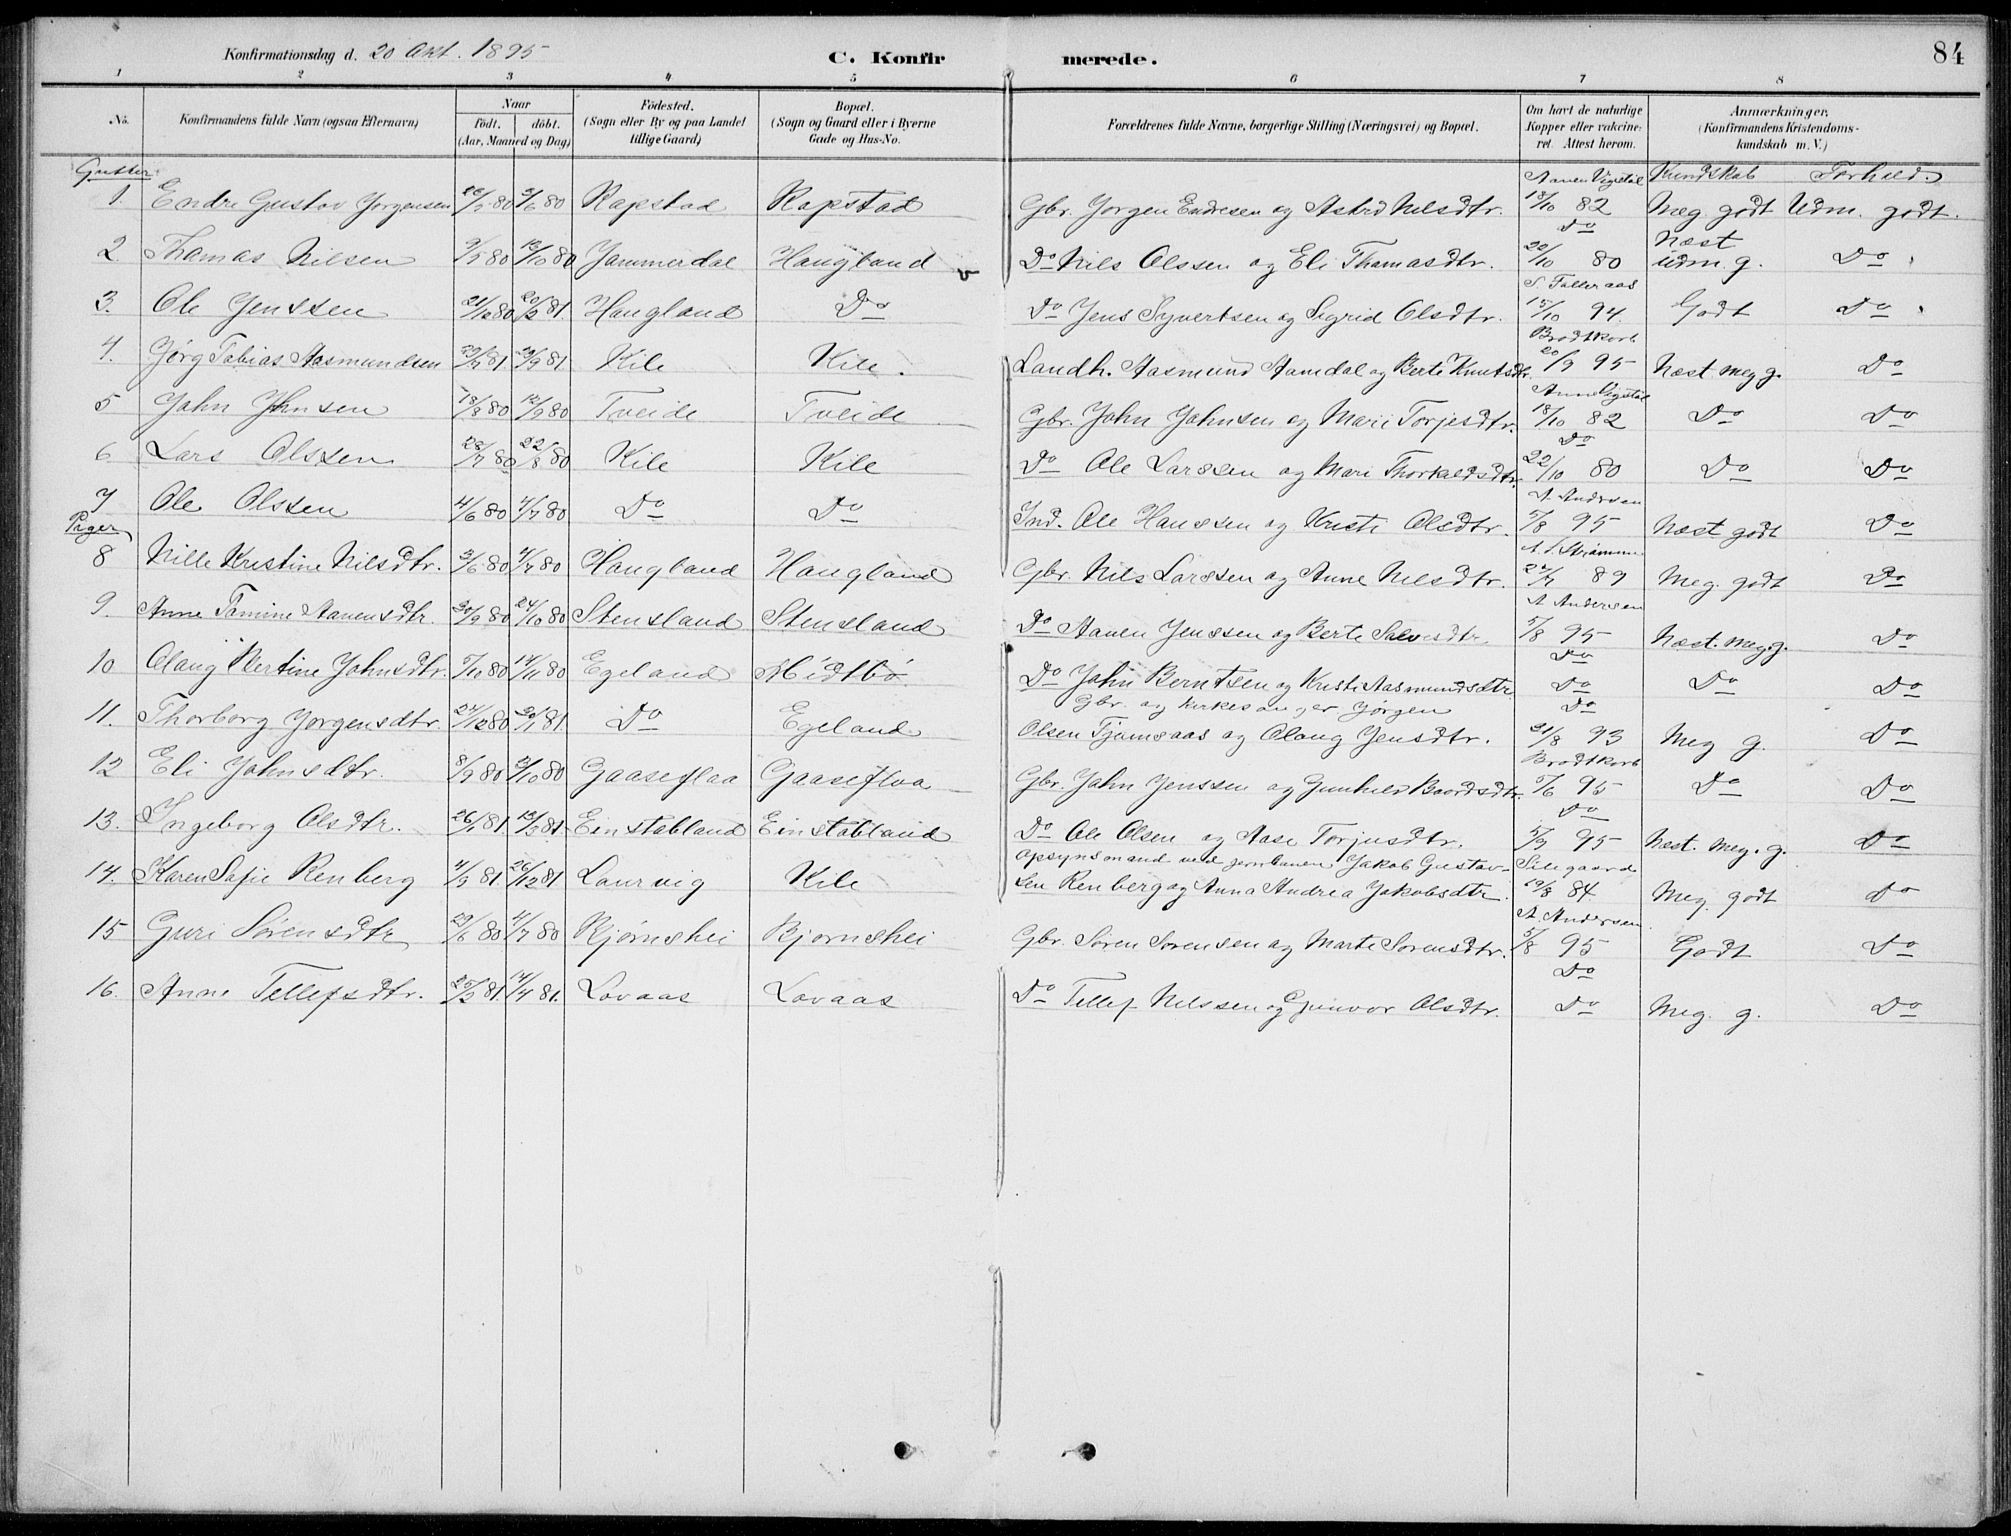 84
Konfirmationsdag d. 20 Okt. 1895
C. Konfirmerede.
1 2 3 4 5 6 7 8
No. Konfirmandens fulde Navn (ogsaa Efternavn) Naar født. døbt. (Aar, Maaned og Dag) Fødested. (Sogn eller By og paa Landet tillige Gaard) Bopæl. (Sogn og Gaard eller i Byerne Gade og Hus-No. Forældrenes fulde Navne, borgerlige Stilling (Næringsvei) og Bopæl. Om havt de naturlige Kopper eller vakcineret. Attest herom. Anmærkninger. (Konfirmandens Kristendomskundskab m. V.)
Gutter Kundskab Forhold
1. Endre Gustav Jørgensen 5/6 80 Rapstad Rapstad Gbr. Jørgen Endresen og Astrid Nilsdtr. Aanen Vigstøl 18/10 82 Meg. godt Udm. godt.
2 Thomas Nilsen 9/5 80 10/10 80 Jammerdal Haugland Do Nils Olssen og Eli Thomasdtr. Do 22/10 80 Næst udm. g. Do
3. Ole Jenssen 21/12 80 20/2 81. Haugland Do Do Jens Syvertsen og Sigrid Olsdtr. 15/10 94. Godt Do
4. Jørg Tobias Aasmundsen 29/7 81. 29/9 81 Kile Kile. Landh. Aasmund Aamdal og Berte Knutsdtr. Brodtkorb 20/9 95 Næst meg g. Do
5 John Jhnsen 18/8 80 12/9 80 Tveide Tveide Gbr. John Johnsen og Mari Torjesdtr. Vigstøl 18/10 82 Do Do
6 Lars Olssen 28/7 80 22/8 80 Kile Kile Do Ole Larssen og Mari Thorkeldsdtr. Do 22/10 80 Do Do
7 Ole Olssen 4/6 80 4/7 80 Do Do Ind. Ole Hanssen og Kristi Olsdtr. A. Andersen 5/8 95 Næst godt Do
Piger
8 Nille Kristine Nilsdtr. 3/6 80 4/7 80 Haugland Haugland Gbr. Nils Larssen og Anne Nilsdtr. 24/7 89 Meg. godt Do
9. Anne Tomine Aanensdtr. 30/9 80 24/10 80 Stensland Stensland Do Aanen Jenssen og Berte Salvesdtr. A Andersen 5/8 95 Næst. meg. g. Do
10 Olaug Bertine Johnsdtr. 5/10 80 14/11 80 Egeland Midtbø Do John Berntsen og Kristi Aasmundsdtr. Do Do Do Do
11. Thorborg Jørgensdtr. 24/12 80 30/1 81. Do Egeland Gbr. og kirkesanger Jørgen Olsen Tjomsaas og Olaug Jensdtr. Do 21/8 93 Meg g. Do
12 Eli Johnsdtr. 8/9 80 3/10 80 Gaaseflaa Gaaseflaa Gbr. John Jenssen og Gunhild Baardsdtr. Brodtkorb 5/6 95 Do Do
13. Ingeborg Olsdtr. 26/1 81. 13/3 81. Einstabland Einstabland Do Ole Olsen og Aase Torjusdtr. Do 5/9 95 Næst. meg. g. Do
14. Karen Sofie Renberg 4/9 81. 26/12 81 Laurvig Kile Opsynsmand ved jernbanen Jakob Gustavsen Renberg og Anna Andrea Jakobsdtr. 19/8 84. Meg. godt Do
15 Guri Sørensdtr 29/6 80 4/7 80 Bjørnshei Bjørnshei Gbr. Søren Sørensen og Marte Sørensdtr. A. Andersen 5/8 95 Godt Do
16. Anne Tellefsdtr. 25/2 81. 14/4 81. Lovaas Lovaas Do Tellef Nilssen og Gunvor Olsdtr. Do Do Meg. g. Do